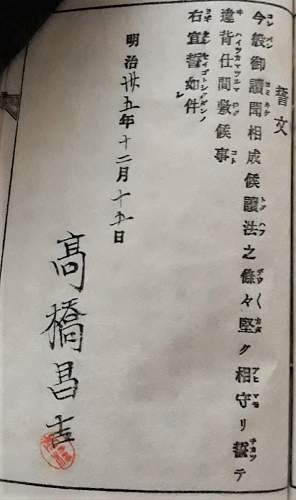 誓文
今般御讀聞相成候讀法之條々堅ク相守リ誓テ
違背仕間敷候事
右宣誓如件
明治卅五年十二月十五日
高橋昌吉